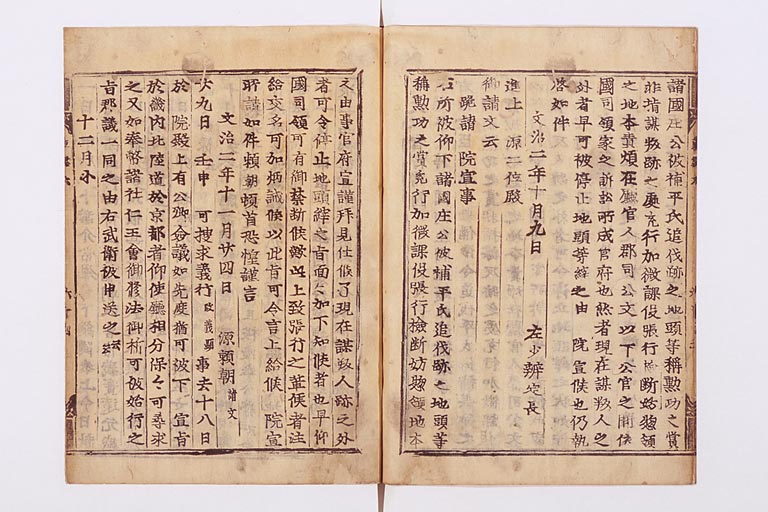 諸國庄公被補平氏追伐跡之地頭等稱勲功之賞
非指謀叛跡之處充行加徴課役張行検断妨惣領
之地本費煩在廰官人郡司公文以下公官之間依
國司領家之訴訟所成官府也然者現在謀叛人之
外者早可被停止地頭等綷之由 院宣候也仍執
啓如件
文治二年十月九日 左少辨定長
進上 源二位殿
御請文云
跪請 院宣事
右所被仰下諸國庄公被補平氏追伐跡之地頭等
稱勲功之賞充行加徴課役張行検断妨惣領地本
之由事官府宣謹拝見仕候了現在謀叛人跡之外
者可令停止地頭綷之旨面々加下知候者也早仰
國司領可有御禁断候縁此上致張行之輩候者注
給交名可加炳誡候以此旨可令言上給候 院宣
所請如件頼朝頓首恐惶謹言
文治二年十一月廿四日 源頼朝請文
大九日 壬申 可捜求義行改義顕事去十八日
於 院殿上有公卿僉議如先度猶可被下 宣旨
於畿内北陸道於京都者仰使廳相分保々可尋求
之又如奉幣諸社仁王會御修法御祈可被始行之
旨郡議一同之由右武衛被申送之云云
十二月小